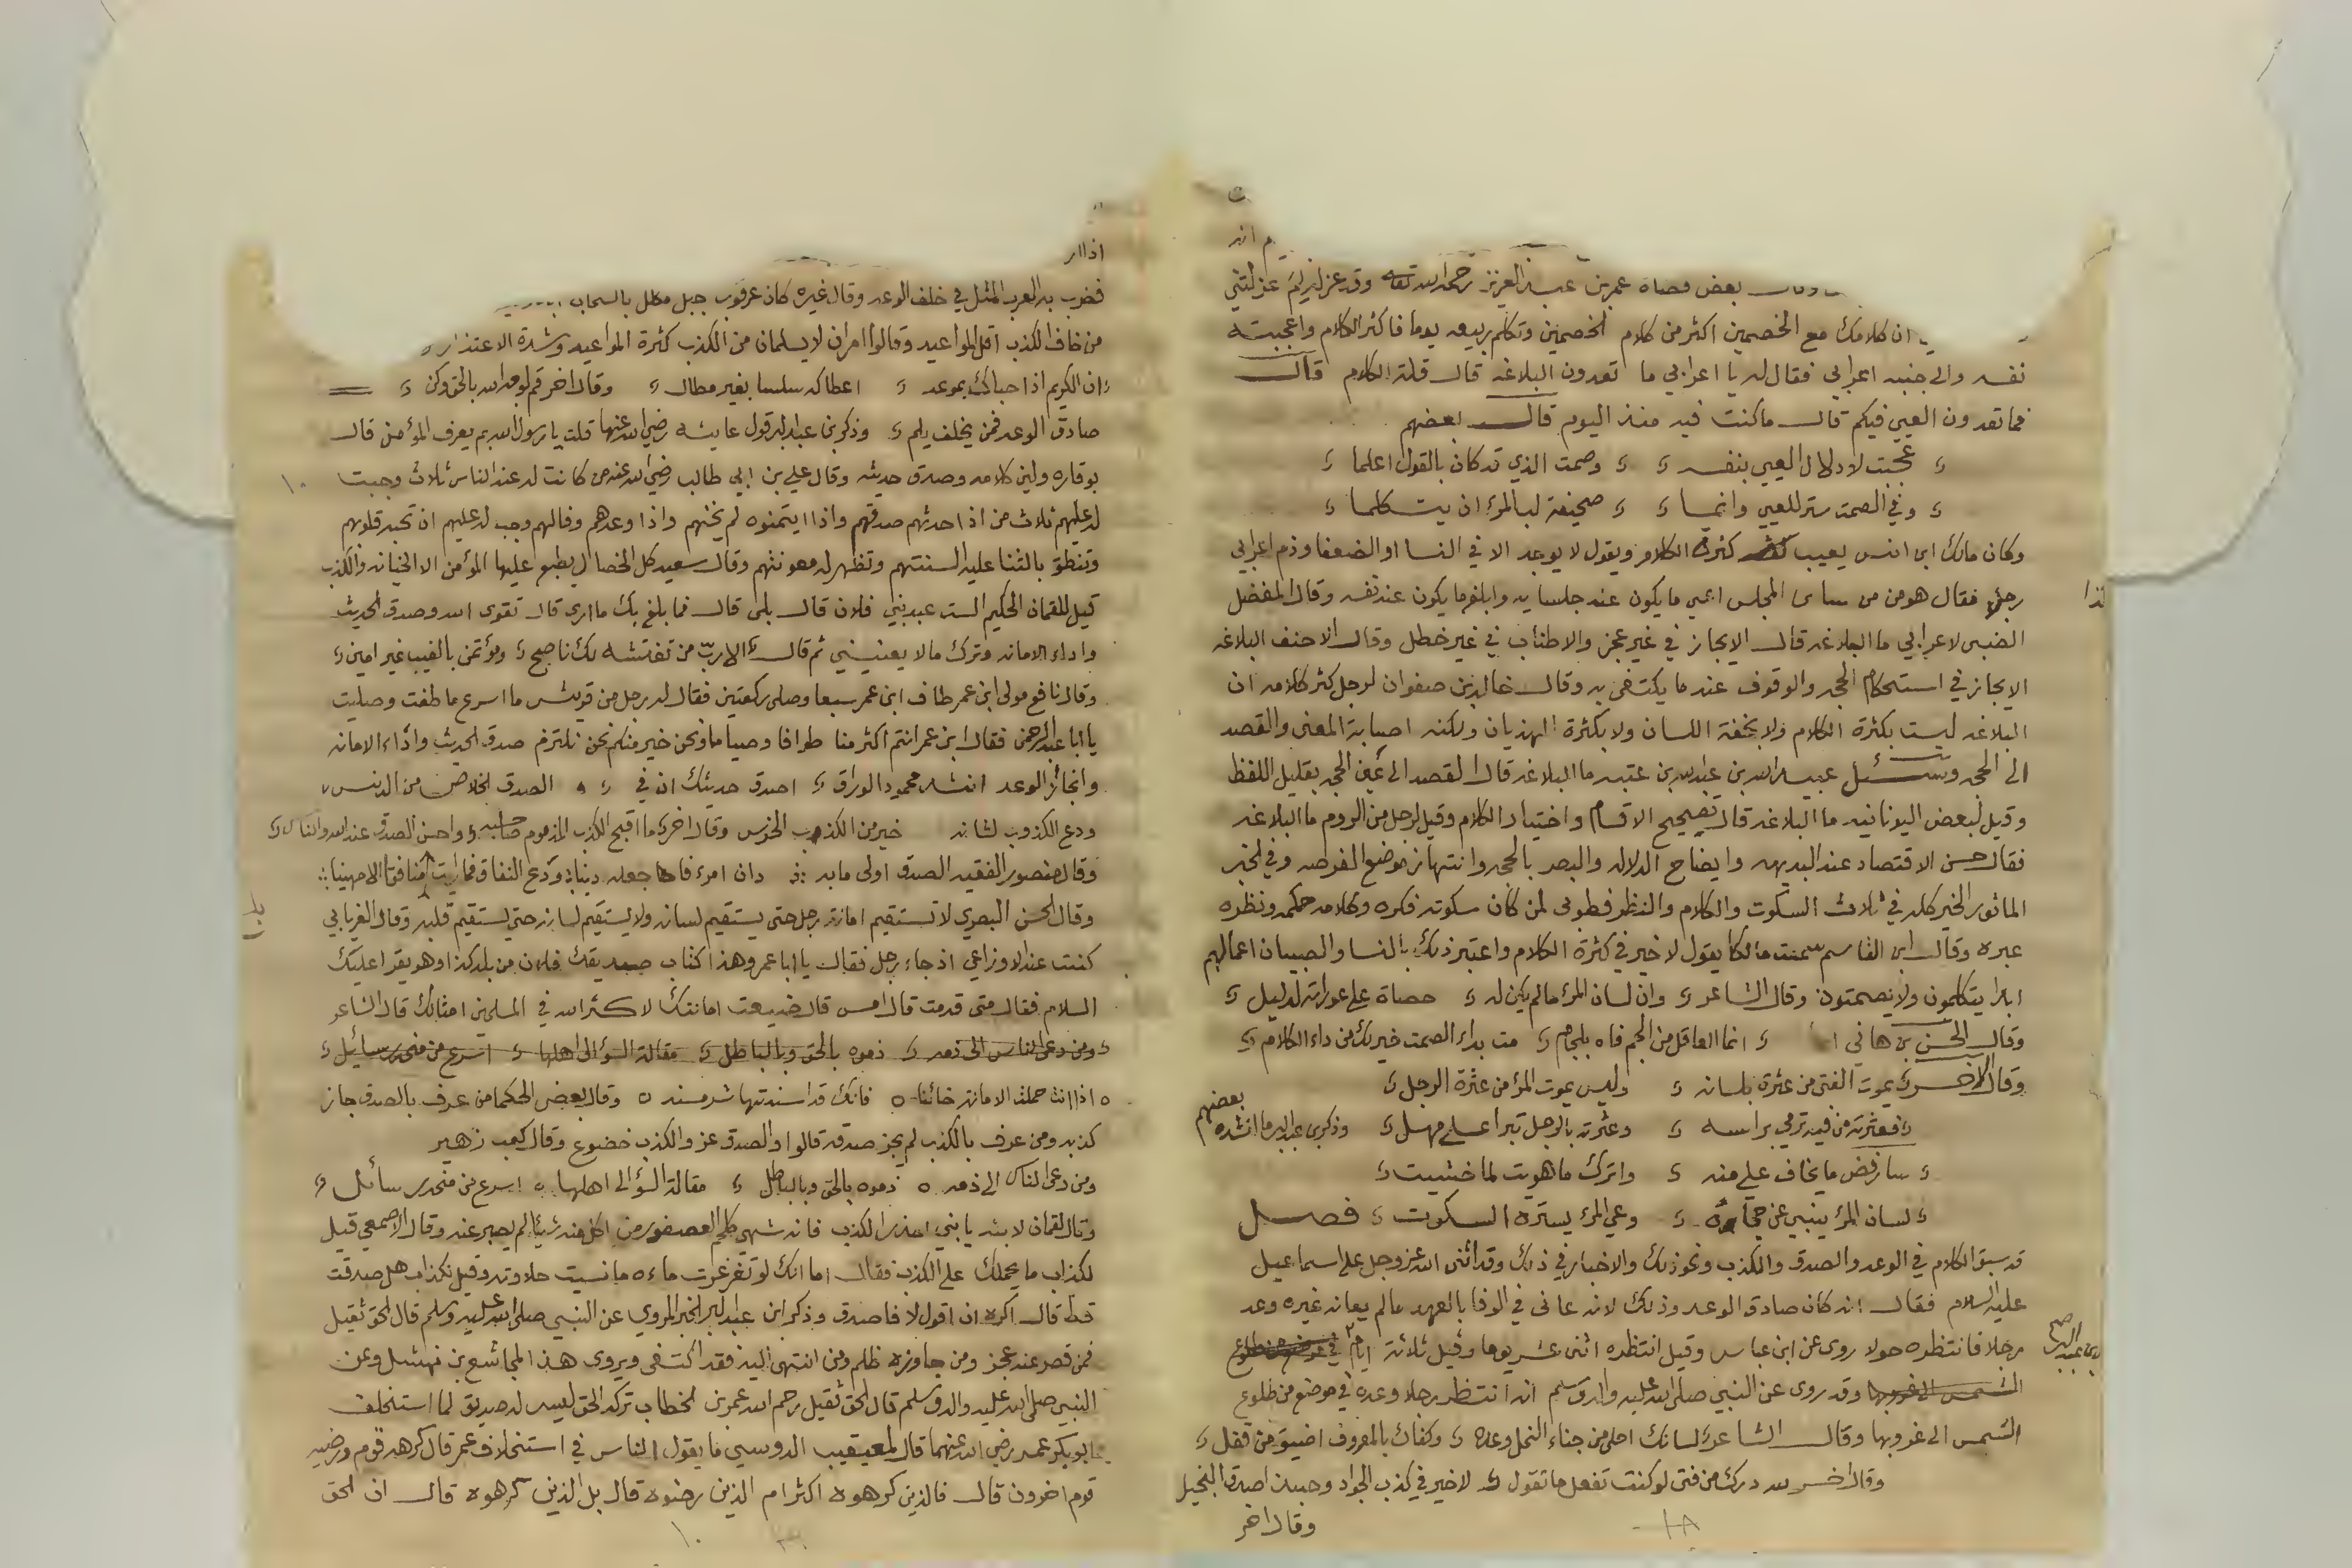 م انه
وقال بعض قضاة عمر بن عبد العزيز رحمه الله تعالى وقد عزله لم عزلتني
ان كلامك مع الخصمين اكثر من كلام الخصمين وتكلم ربيعه يوما فاكثر الكلام واعجبته
نفسه والى جنبه اعرابي فقال له يا اعرابي ما تعدون البلاغه قال قلة الكلام قال
فما تعدون العيي فيكم قال ما كنت فيه منذ اليوم قال بعضهم
عجبت لادلال العيي بنفسه وصمت الذي قد كان بالقول اعلما
وفي الصمت ستر للعيي وانما صحيفة لب المرء ان يتكلما
وكان مالك ابن انس يعيب كثرة الكلام ويقول لا يوجد الا في النسا او الضعفا وذم اعرابي
رجلا فقال هو من من المجلس اعيى ما يكون عند جلسايه وابلغ ما يكون عند نفسه وقال المفضل
كذا
الضبي لاعرابي ما البلاغه قال الايجاز في غير عجز والاطناب في غير خطل وقال الاحنف البلاغه
الايجاز في استحكام الحجه والوقوف عند ما يكتفى به وقال خالد بن صفوان لرجل كثر كلامه ان
البلاغه ليست بكثرة الكلام ولا بخفة اللسان ولا بكثرة الهذيان ولكنه اصابة المعنى والقصد
الى الحجه وسئل عبيد الله بن عبد الله بن عتبه ما البلاغه قال القصد الى عين الحجه بقليل اللفظ
وقيل لبعض اليونانيه ما البلاغه قال تصحيح الاقسام واختيار الكلام وقيل لرجل من الروم ما البلاغه
فقال حسن الاقتصاد عند البديهه وايضاح الدلاله والبصر بالحجه وانتهاز موضع الفرصه وفي الخبر
الماثور الخير كله في ثلاث السكوت والكلام والنظر فطوبى لمن كان سكوته فكره وكلامه حكمه ونظره
عبره وقال ابن القاسم سمعت مالكا يقول لا خير في كثرة الكلام واعتبر ذلك بالنسا والصبيان اعمالهم
ابدا يتكلمون ولا يصمتون وقال الشاعر وان لسان المرء ما لم يكن له حصاة على عوراته لدليل
وقال الحسن بن هاني انما العاقل من الجم فاه بلجام مت بداء الصمت خير لك من داء الكلام
وقال الاخر يموت الفتى من عثرة بلسانه وليس يموت المرء من عثرة الرجل
فعثرته من فيه ترمي براسه وعثرته بالرجل تبرا على مهل وذكر بن عبد البر ما انشده بعضهم
سارفض ما يخاف علي منه واترك ما هويت لما خشيت
لسان المرء ينبي عن حجاه وعي المرء يستره السكوت فصل
قد سبق الكلام في الوعد والصدق والكذب ونحو ذلك والاخبار في ذلك وقد اثنى الله عز وجل على اسماعيل
عليه السلام فقال انه كان صادق الوعد وذلك لانه عانى في الوفا بالعهد ما لم يعانه غيره وعد
رجلا فانتظره حولا روى عن ابن عباس وقيل انتظره اثنى عشر يوما وقيل ثلاثة ايام في موضع من طلوع
الشمس الى غروبها وقد روى عن النبي صلى الله عليه واله وسلم انه انتظر رجلا وعده في موضع من طلوع
الشمس الى غروبها وقال الشاعر لسانك احلى من جناء النحل وعده وكفاك بالمعروف اضيق من قفل
وقال اخر لله درك من فتى لو كنت تفعل ما تقول لا خير في كذب الجواد وحبذا صدق البخيل
وقال اخر
١٨
اذا
فضرب به العرب المثل في خلف الوعد وقال غيره كان عرقوب جبل مكلل بالسحاب
من خاف الكذب اقل المواعيد وقالوا امران لا يسلمان من الكذب كثرة المواعيد وشدة الاعتذار
ان الكريم اذا حباك بموعد اعطاكه سلسا بغير مطال وقال اخر قم لوجه الله بالحق وكن
صادق الوعد فمن يخلف يلم وذكر بن عبد البر قول عايشه رضي الله عنها قلت يا رسول الله بم يعرف المؤمن قال
بوقاره ولين كلامه وصدق حديثه وقال علي بن ابي طالب رضي الله عنه من كانت له عند الناس ثلاث وجبت
له عليهم ثلاث من اذا حدثهم صدقهم واذا ايتمنوه لم يخنهم واذا وعدهم وفا لهم وجب له عليهم ان تحبه قلوبهم
وتنطق بالثنا عليه السنتهم وتظهر له معونتهم وقال سعيد كل الخصال يطبع عليها المؤمن الا الخيانه والكذب
قيل للقمان الحكيم الست عبد بني فلان قال بلى قال فما بلغ بك ما ارى قال تقوى الله وصدق الحديث
واداء الامانه وترك ما لا يعنيني ثم قال الا رب من تغتشه لك ناصح ومؤتمن بالغيب غير امين
وقال نافع مولى ابن عمر طاف ابن عمر سبعا وصلى ركعتين فقال له رجل من قريش ما اسرع ما طفت وصليت
يا ابا عبد الرحمن فقال ابن عمر انتم اكثر منا طوافا وصياما ونحن خير منكم نحن نلتزم صدق الحديث واداء الامانه
وانجاز الوعد انشد محمود الوراق اصدق حديثك ان في الصدق الخلاص من الدنس
ودع الكذوب لشانه خير من الكذب الخرس وقال اخر ما اقبح الكذب المذموم صاحبه واحسن الصدق عند الله والناس
وقال منصور الفقيه الصدق اولى ما به دان امرء فاجعله دينا ودع النفاق فما رايت منافقا الا مهينا
وقال الحسن البصري لا تستقيم امانة رجل حتى يستقيم لسانه ولا يستقيم لسانه حتى يستقيم قلبه وقال الفريابي
كنت عند الاوزاعي اذ جاء رجل فقال يا ابا عمر وهذا كتاب صديقك فلان من بلد كذا وهو يقرا عليك
السلام فقال متى قدمت قال امس قال ضيعت امانتك لا كثر الله في المسلمين امثالك قال الشاعر
ومن دعى الناس الى ذمه ذموه بالحق وبالباطل مقالة السوء الى اهلها اسرع من منحدر سائل
اذا انت حملت الامانة خائنا فانك قد اسندتها شر مسند وقال بعض الحكما من عرف بالصدق جاز
كذبه ومن عرف بالكذب لم يجز صدقه قالوا والصدق عز والكذب خضوع وقال كعب زهير
ومن دعى الناس الى ذمه ذموه بالحق وبالباطل مقالة السوء الى اهلها اسرع من منحدر سائل
وقال لقمان لابنه يا بني احذر الكذب فانه شهي كلحم العصفور من اكل منه شيئا لم يصبر عنه وقال الاصمعي قيل
لكذاب ما يحملك على الكذب فقال اما انك لو تغرغرت ماءه ما نسيت حلاوته وقيل لكذاب هل صدقت
قط قال اكره ان اقول لا فاصدق وذكر ابن عبد البر الخبر المروي عن النبي صلى الله عليه وسلم قال الحق ثقيل
فمن قصر عنه عجز ومن جاوزه ظلم ومن انتهى اليه فقد اكتفى ويروى هذا لمجاشع بن نهشل وعن
النبي صلى الله عليه واله وسلم قال الحق ثقيل رحم الله عمر بن الخطاب تركه الحق ليس له صديق لما استخلف
ابو بكر عمر رضي الله عنهما قال لمعيقيب الدوسي ما يقول الناس في استخلاف عمر قال كرهه قوم ورضيه
قوم اخرون قال فالذين كرهوه اكثر ام الذين رضوه قال بل الذين كرهوه قال ان الحق